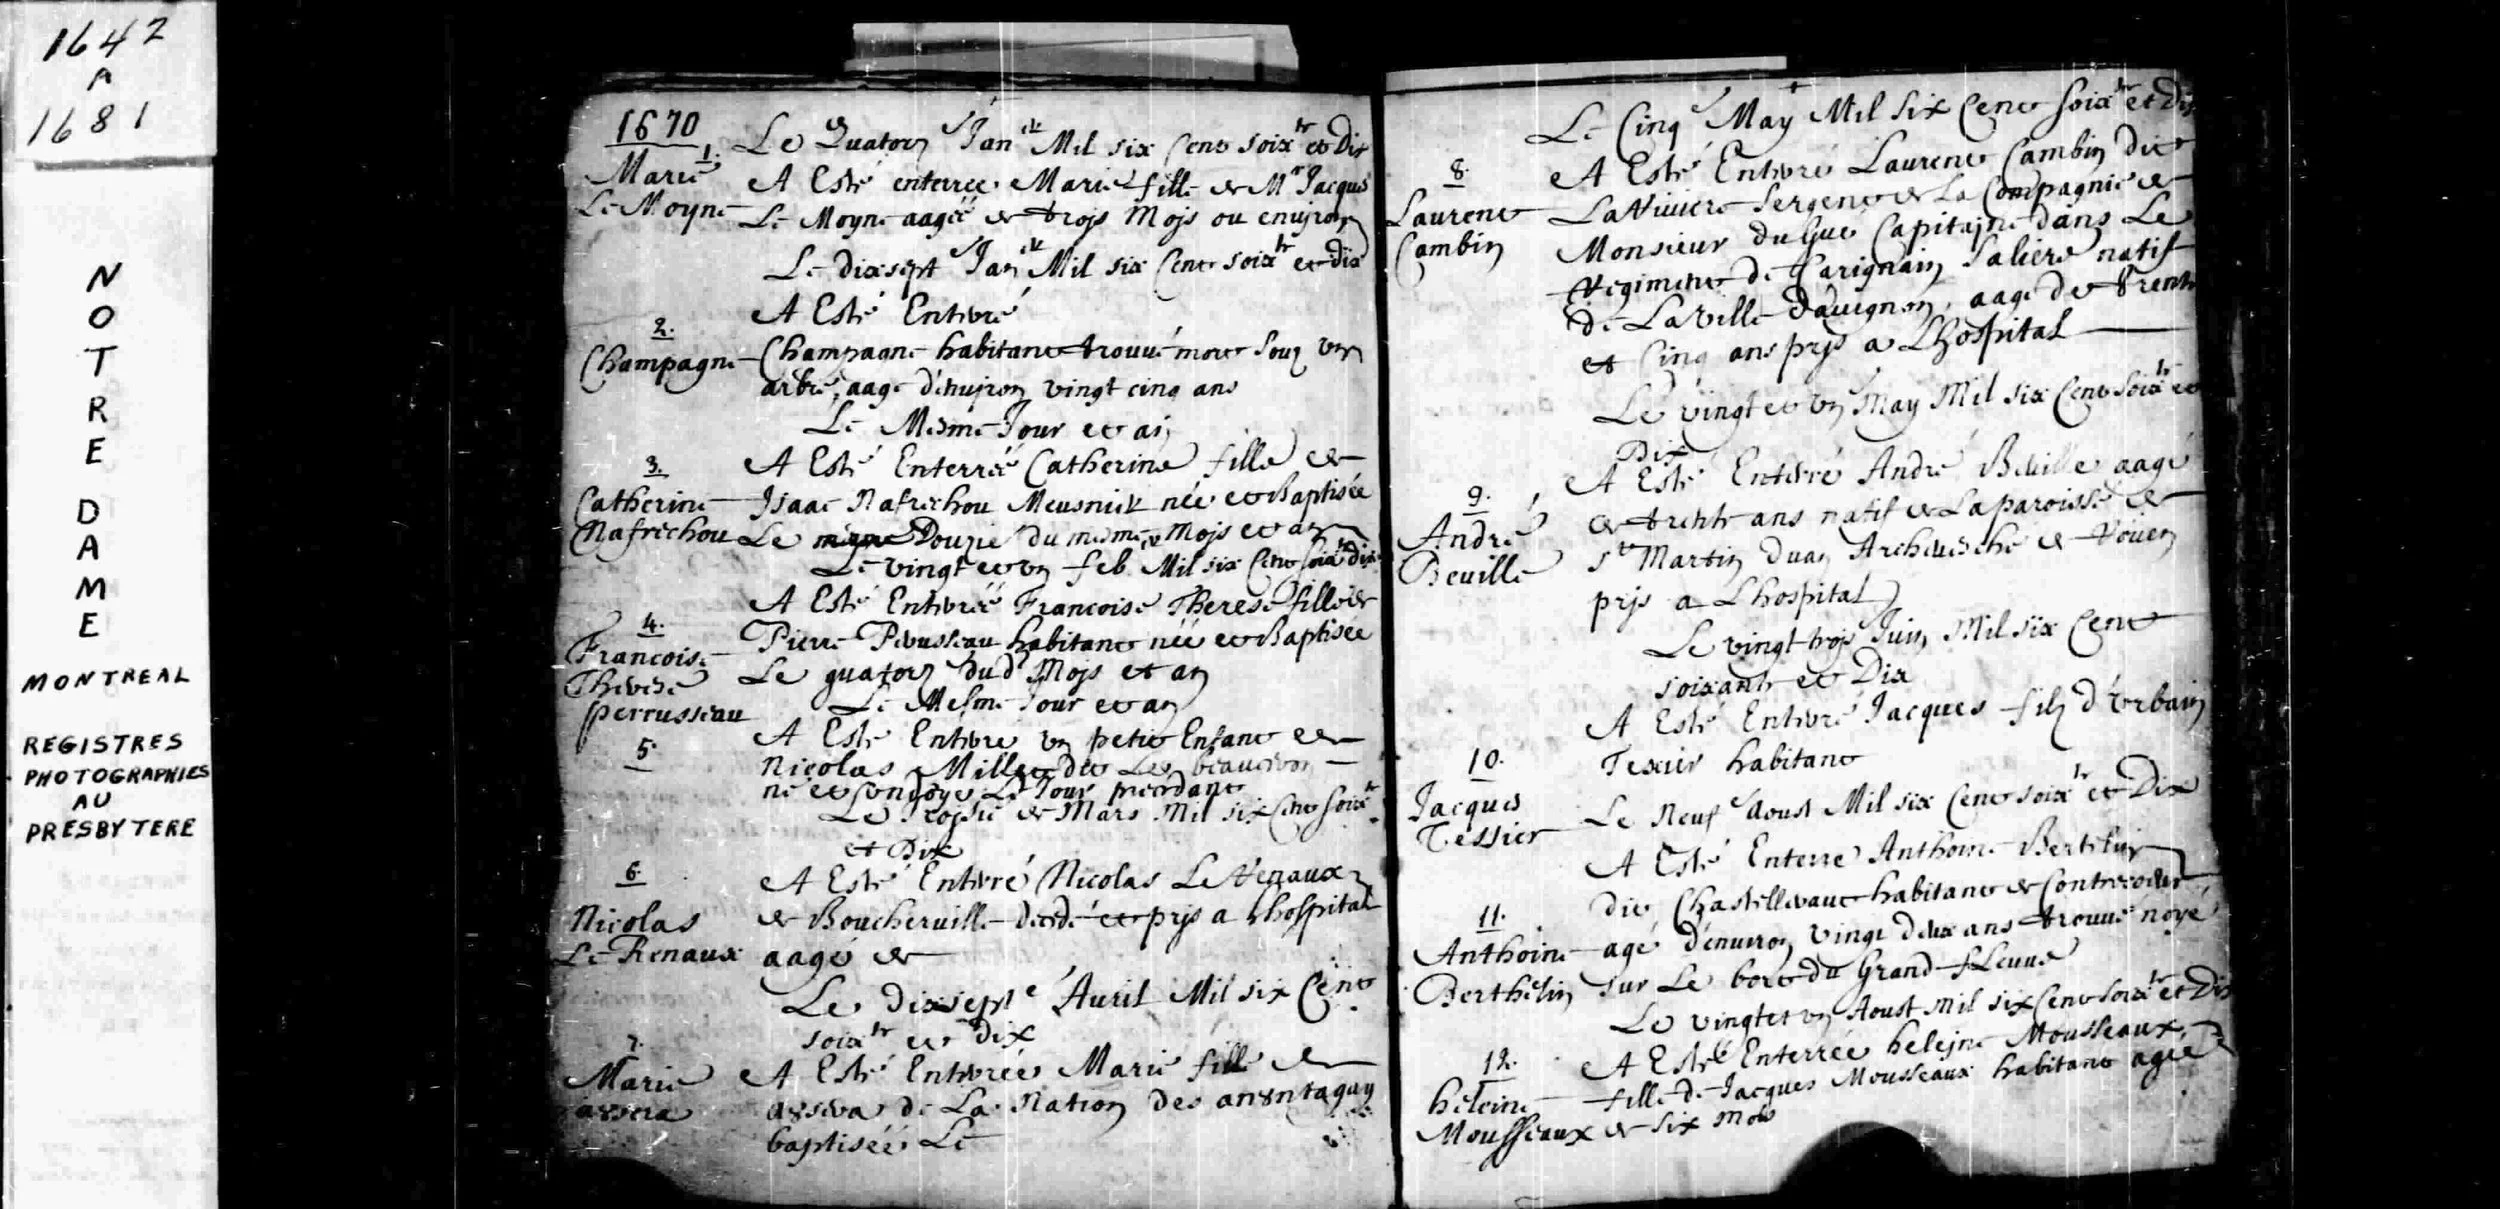 1642
A
1681
NOTRE
DAME
MONTREAL
REGISTRES
PHOTOGRAPHIES
AU
PRESBYTERE
1670
1.
Marie
Le Moyne
Le Quatorz e Jan er Mil six Cent soix te et Dix
A Esté enterree Marie fille de M r Jacques
Le Moyne aagée de trojs Mojs ou enujron
Le dixsept e Jan er Mil six Cent soix te et dix
A Esté Enterré
2.
Champagne
Champagne habitant trouué mort souz un
arbre, aagé d'enujron vingt cinq ans
Le Mesme Jour et an
3.
Catherine
Nafrechou
A Esté Enterrée Catherine fille de
Isaac Nafrechou Meusnier née et Baptisée
Le Douzie du mesme Mojs et an
Le vingt et un feb. Mil six Cent soix te dix
4.
Francoise
Therese
perrusseau
A Esté Enterrée Francoise Therese fille de
Pierre Perusseau habitant née et Baptisée
Le quatorz e dud Mojs et an
Le Mesme Jour et an
5.
A Esté Enterré un petit Enfant de
Nicolas Millet dit Le beauceron
né et ondoyé Le Jour precedant
Le Trojsie de Mars Mil six Cent soix te
et Dix
6.
Nicolas
Le Renaux
A Esté Enterré Nicolas Le Renaux
de Boucheruille decedé et prjs a Lhospital
aagé de
Le dixsept e Auril Mil six Cent
soix te et dix
7.
Marie
A Esté Enterrée Marie fille de
de La Nation des
baptisée Le
Le Cinq e May Mil six Cent soix te et Dix
8.
Laurent
Cambin
A Esté Enterré Laurent Cambin dit
LaViuiere sergent de La Compagnie de
Monsieur duGué Capitajne dans Le
regiment de Carignain Saliere natif
de La ville d'auignon, aagé de trente
et Cinq ans prjs a Lhospital
Le vingt et un May Mil six Cent soix te et
Dix
9.
André
Beuille
A Esté Enterré André Beuille aagé
de trente ans natif de La paroisse de
s t Martin duan Archeuesché de Rouen
prjs a Lhospital
Le vingt trojs Juin Mil six Cent
soixante et Dix
10.
Jacques
Tessier
A Esté Enterré Jacques filz d'urbain
Texier habitant
Le Neuf e Aoust Mil six Cent soix te et Dix
11.
Anthoine
Berthelin
A Esté Enterre Anthoine Bertelin
dit Chastellerault habitant de Contrecoeur
agé d'enuiron vingt deux ans trouué noyé
sur Le bort du Grand fleuue
Le vingt et un Aoust Mil six Cent soix te et Dix
12.
heleine
Mousseaux
A Esté Enterrée helejne Mousseaux
fille de Jacques Mousseaux habitant agée
de six Mois